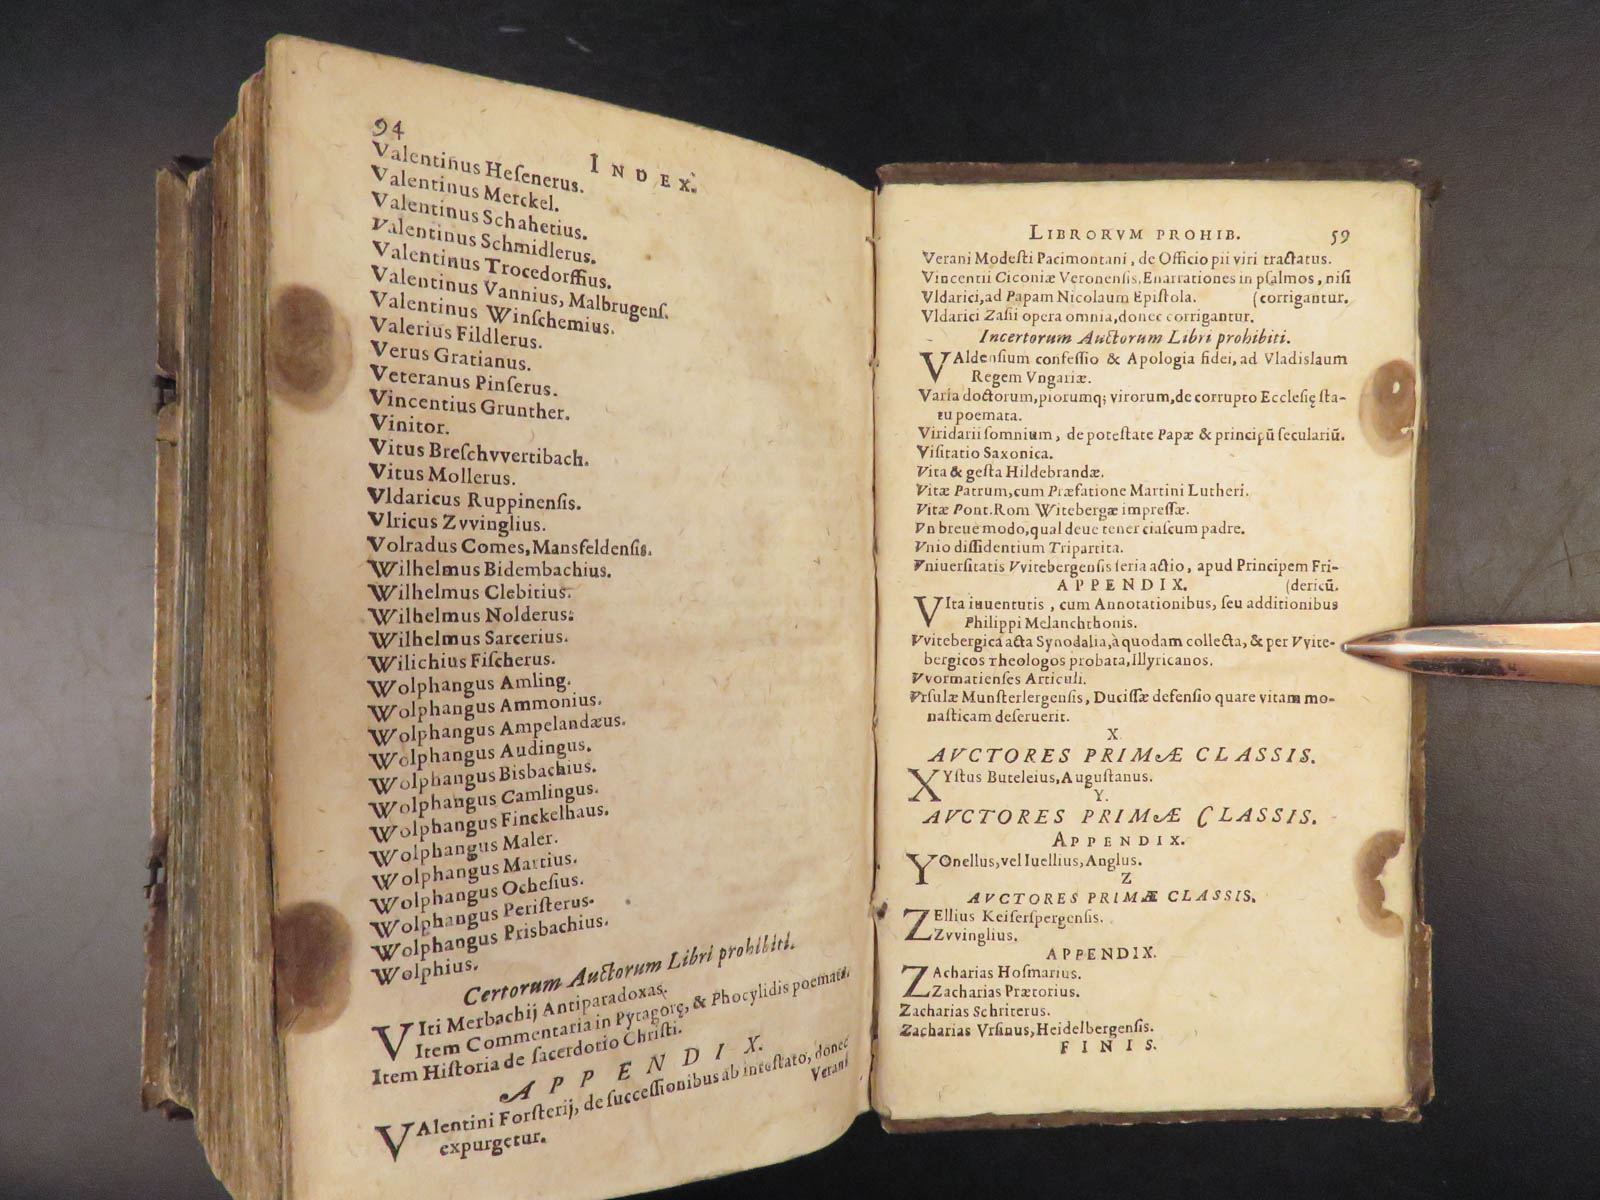 94
INDEX.
Valentinus Heſenerus.
Valentinus Merckel.
Valentinus Schahetius.
Valentinus Schmidlerus.
Valentinus Trocedorffius.
Valentinus Vannius, Malbrugenſ.
Valentinus Winſchemius.
Valerius Fildlerus.
Verus Gratianus.
Veteranus Pinſerus.
Vincentius Grunther.
Vinitor.
Vitus Breſchvvertibach.
Vitus Mollerus.
Vldaricus Ruppinenſis.
Vlricus Zvvinglius.
Volradus Comes, Mansfeldenſis.
Wilhelmus Bidembachius.
Wilhelmus Clebitius.
Wilhelmus Nolderus.
Wilhelmus Sarcerius.
Wilichius Fiſcherus.
Wolphangus Amling.
Wolphangus Ammonius.
Wolphangus Ampelandæus.
Wolphangus Audingus.
Wolphangus Bisbachius.
Wolphangus Camlingus.
Wolphangus Finckelhaus.
Wolphangus Maler.
Wolphangus Martius.
Wolphangus Ocheſius.
Wolphangus Periſterus.
Wolphangus Prisbachius.
Wolphius.
Certorum Auctorum Libri prohibiti.
VIti Merbachij Antiparadoxas.
Item Commentaria in Pytagorę, & Phocylidis poemata.
Item Hiſtoria de ſacerdotio Chriſti.
APPENDIX.
VAlentini Forſterij, de ſucceſſionibus ab inteſtato, donec
expurgetur.
Verani
LIBRORVM PROHIB. 59
Verani Modeſti Pacimontani, de Officio pii viri tractatus.
Vincentii Ciconiæ Veronenſis, Enarrationes in pſalmos, niſi
Vldarici, ad Papam Nicolaum Epiſtola. (corrigantur.
Vldarici Zaſii opera omnia, donec corrigantur.
Incertorum Auctorum Libri prohibiti.
VAldenſium confeſſio & Apologia fidei, ad Vladislaum
Regem Vngariæ.
Varia doctorum, piorumq; virorum, de corrupto Eccleſię ſta-
tu poemata.
Viridarii ſomnium, de poteſtate Papæ & principū ſeculariū.
Viſitatio Saxonica.
Vita & geſta Hildebrandæ.
Vitæ Patrum, cum Præfatione Martini Lutheri.
Vitæ Pont. Rom Witebergæ impreſſæ.
Vn breue modo, qual deue tener ciaſcum padre.
Vnio diſſidentium Tripartita.
Vniuerſitatis Vvitebergenſis ſeria actio, apud Principem Fri-
APPENDIX. (dericū.
VIta iuuentutis, cum Annotationibus, ſeu additionibus
Philippi Melanchthonis.
Vvitebergica acta Synodalia, à quodam collecta, & per Vvite-
bergicos Theologos probata, Illyricanos.
Vvormatienſes Articuli.
Vrſulæ Munſterlergenſis, Duciſſæ defenſio quare vitam mo-
naſticam deſeruerit.
X.
AVCTORES PRIMÆ CLASSIS.
XYſtus Buteleius, Auguſtanus.
Y.
AVCTORES PRIMÆ CLASSIS.
APPENDIX.
YOnellus, vel Iuellius, Anglus.
Z
AVCTORES PRIMÆ CLASSIS.
ZEllius Keiſerſpergenſis.
Zvvinglius.
APPENDIX.
ZAcharias Hoſmarius.
Zacharias Prætorius.
Zacharias Schriterus.
Zacharias Vrſinus, Heidelbergenſis.
FINIS.